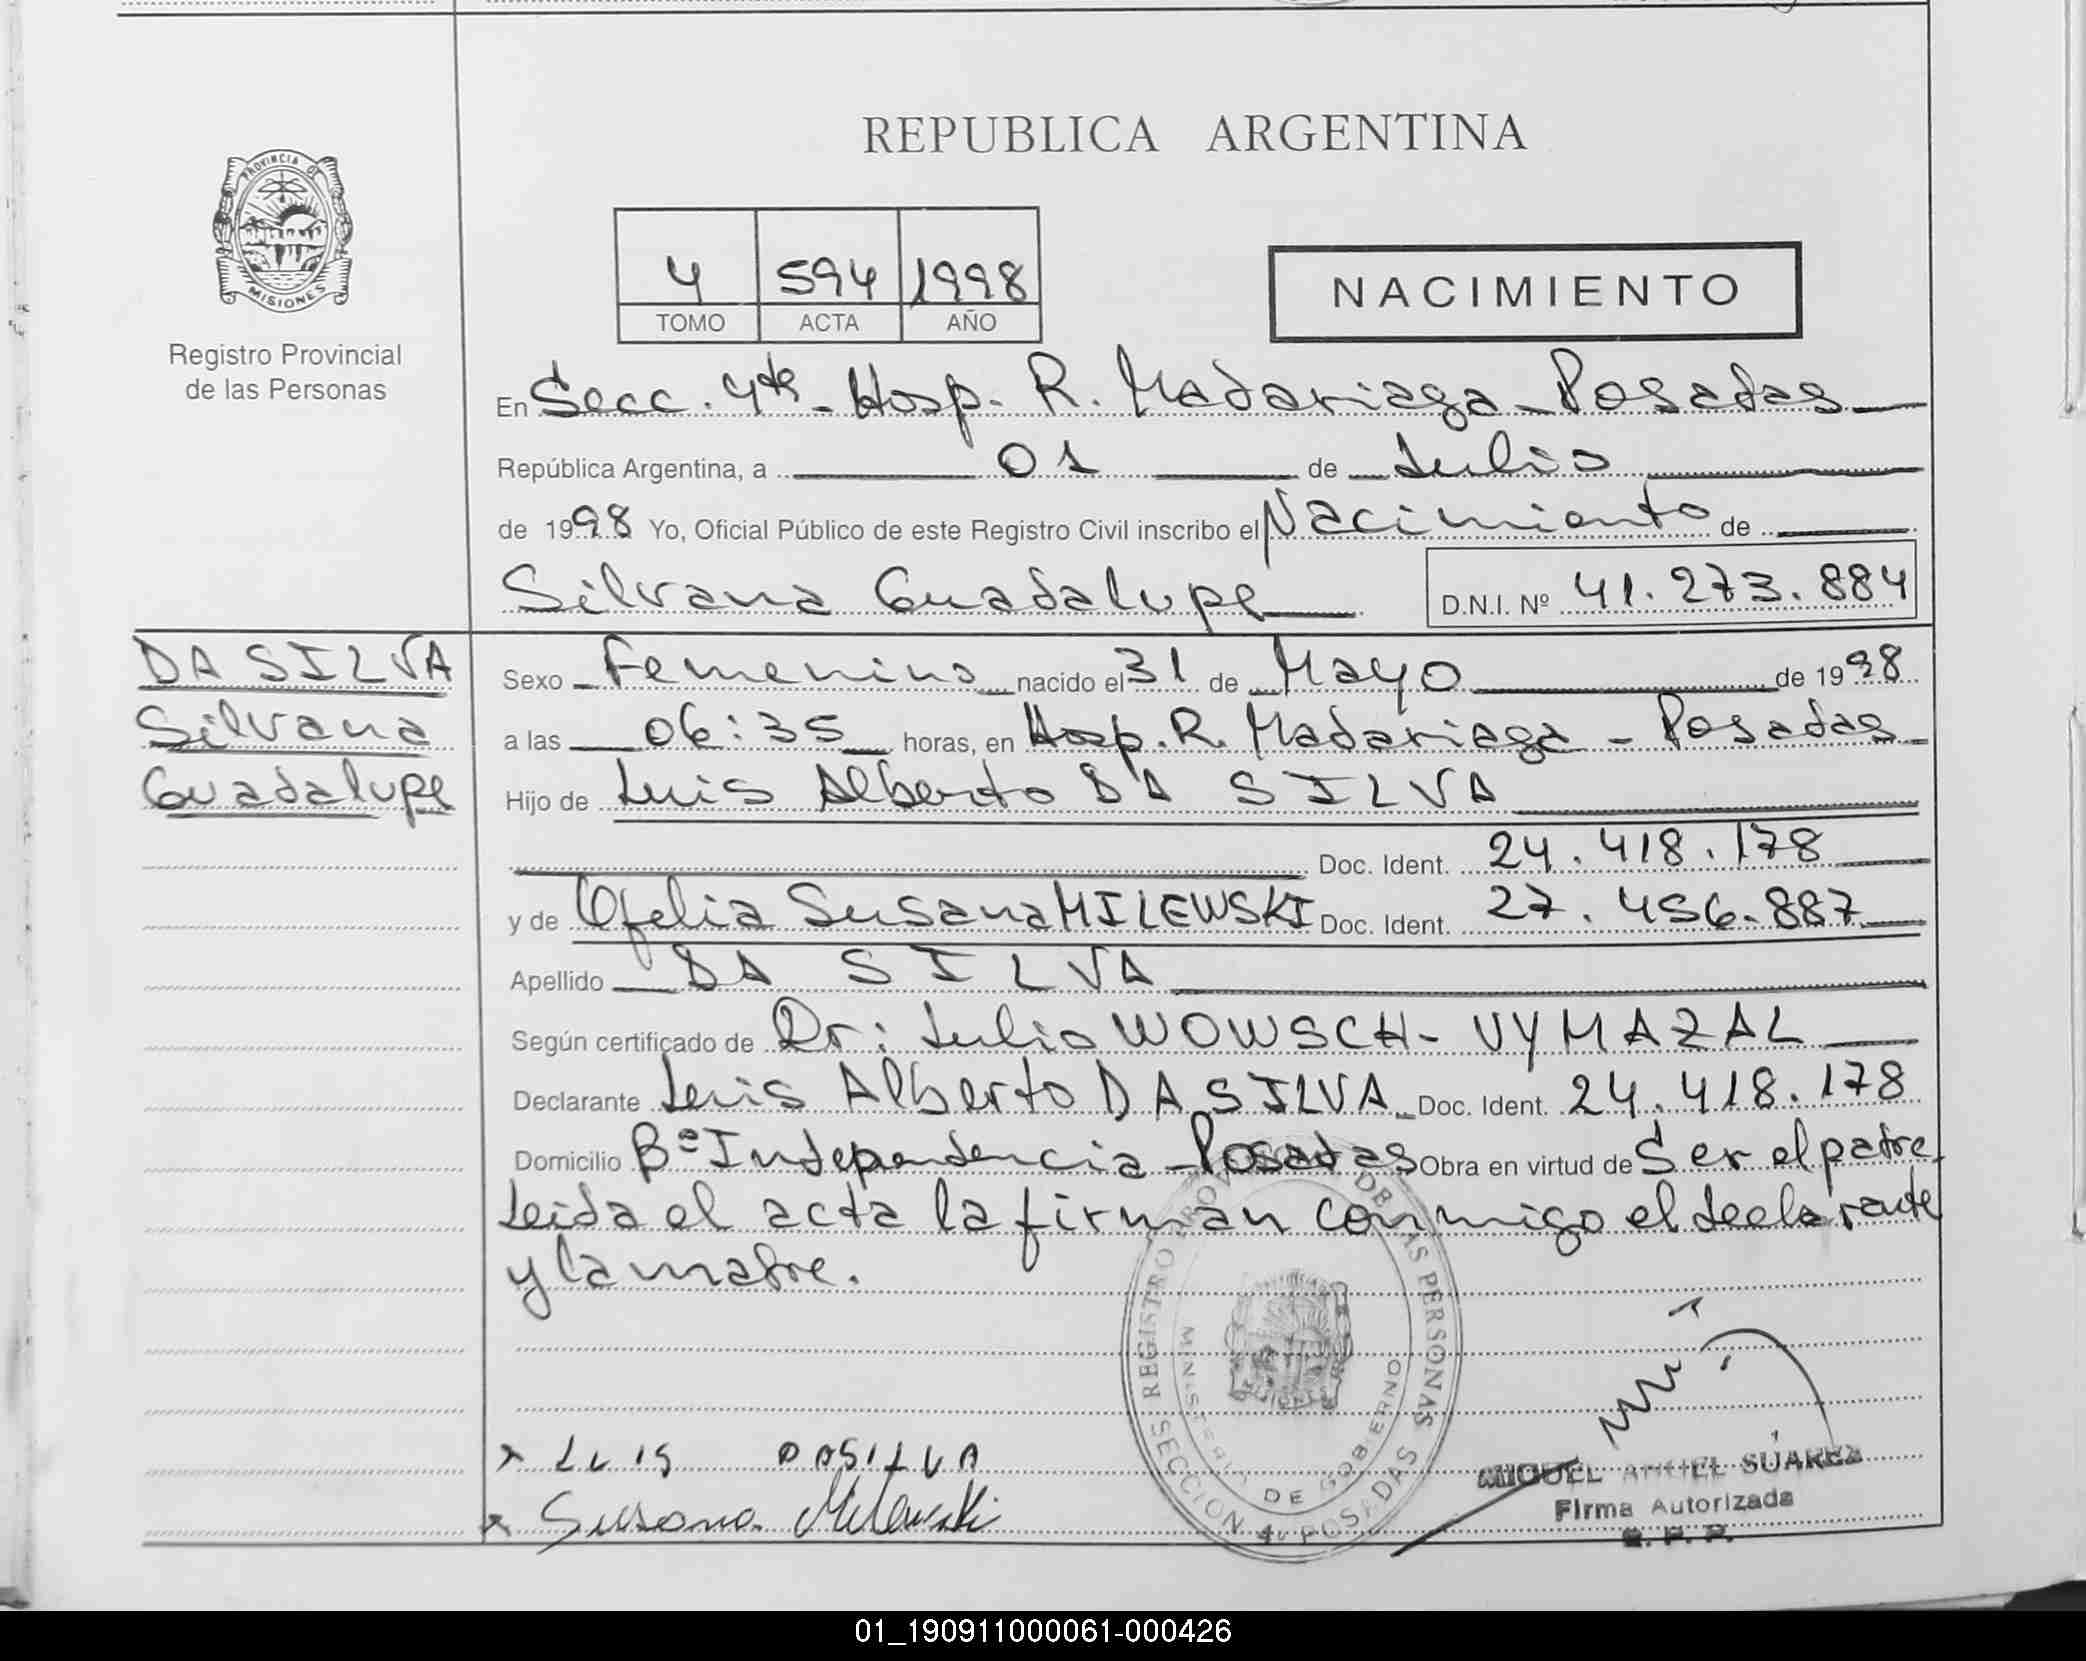 REPUBLICA ARGENTINA
PROVINCIA DE
MISIONES
Registro Provincial
de las Personas
4 594 1998
TOMO ACTA AÑO
NACIMIENTO
En Secc. 4ta - Hosp. R. Madariaga - Posadas
República Argentina, a 01 de Julio
de 1998 Yo, Oficial Público de este Registro Civil inscribo el Nacimiento de
Silvana Guadalupe D.N.I. Nº 41.273.884
DA SILVA
Silvana
Guadalupe
Sexo Femenino nacido el 31 de Mayo de 1998
a las 06:35 horas, en Hosp. R. Madariaga - Posadas
Hijo de Luis Alberto DA SILVA
Doc. Ident. 24.418.178
y de Ofelia Susana MILEWSKI Doc. Ident. 27.456.887
Apellido DA SILVA
Según certificado de Dr: Julio WOWSCH - VYMAZAL
Declarante Luis Alberto DA SILVA Doc. Ident. 24.418.178
Domicilio Bº Independencia - Posadas Obra en virtud de Ser el padre.
Leida el acta la firman conmigo el declarante
y la madre.
REGISTRO PROVINCIAL DE LAS PERSONAS
MINISTERIO DE GOBIERNO
SECCION 4º POSADAS
x LUIS DASILVA
x Susana Milewski
MIGUEL ANGEL SUAREZ
Firma Autorizada
01_190911000061-000426